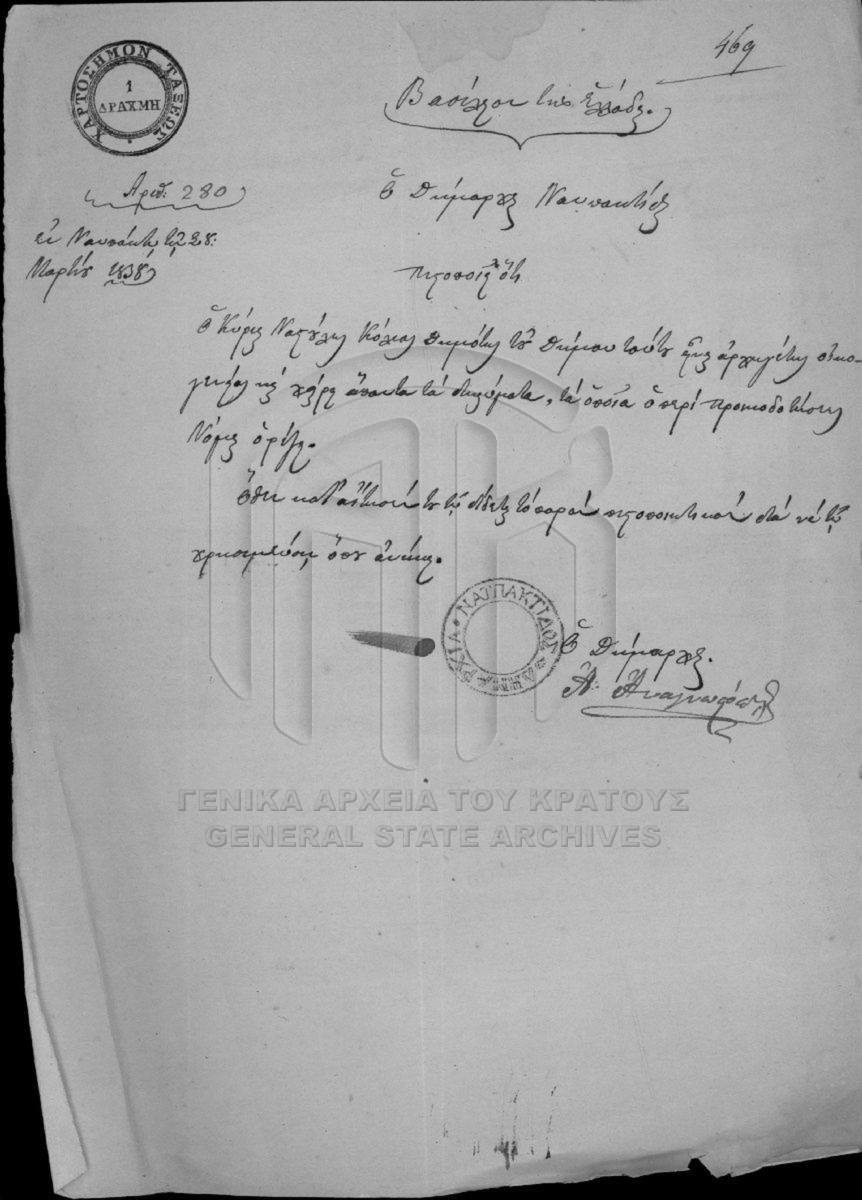 469
ΧΑΡΤΟΣΗΜΟΝ ΤΑΞΕΩΣ
1
ΔΡΑΧΜΗ
Βασίλειον της Ἑλλάδος.
Ἀριθ: 280
ἐν Ναυπάκτῳ τῇ 28:
Μαρτίου 1838
Ὁ Δήμαρχος Ναυπακτίδος
πιστοποιεῖ ὅτι
ὁ Κύριος Κόλιας δημότης τοῦ Δήμου τούτου εἶναι ἀρχηγέτης οἰκο-
γενείας καὶ χαίρει ἅπαντα τὰ δικαιώματα, τὰ ὁποῖα ὁ περὶ προικοδοτήσεως
Νόμος ὁρίζει.
Ὅθεν κατ' αἴτησίν του τῷ δίδεται τὸ παρὸν πιστοποιητικὸν διὰ νὰ τῷ
χρησιμεύσῃ ὅπου ἀνήκει.
ΔΗΜΑΡΧΙΑ ΝΑΥΠΑΚΤΙΔΟΣ
Ὁ Δήμαρχος.
ΓΕΝΙΚΑ ΑΡΧΕΙΑ ΤΟΥ ΚΡΑΤΟΥΣ
GENERAL STATE ARCHIVES